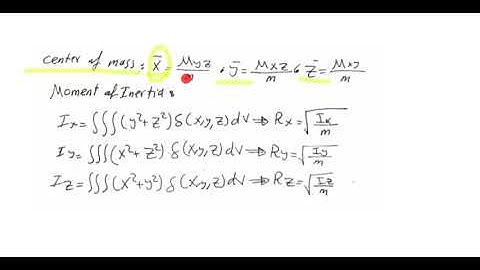 Center of mass: x̄ = Myz/m, ȳ = Mxz/m, z̄ = Mxy/m
Moment of Inertia:
Ix = ∫∫∫(y²+z²) δ(x,y,z) dV ⇒ Rx = √(Ix/m)
Iy = ∫∫∫(x²+z²) δ(x,y,z) dV ⇒ Ry = √(Iy/m)
Iz = ∫∫∫(x²+y²) δ(x,y,z) dV ⇒ Rz = √(Iz/m)